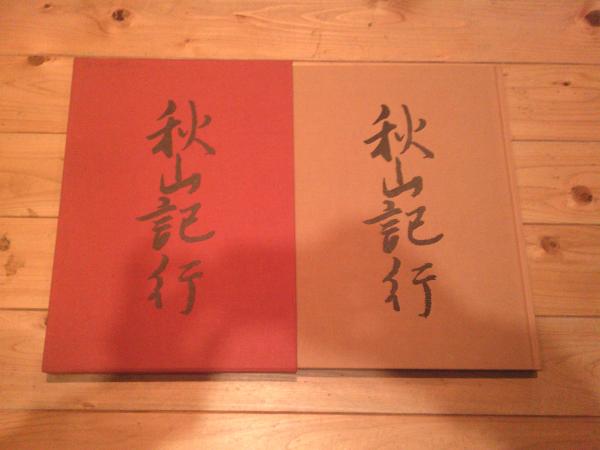 秋山記行
秋山記行